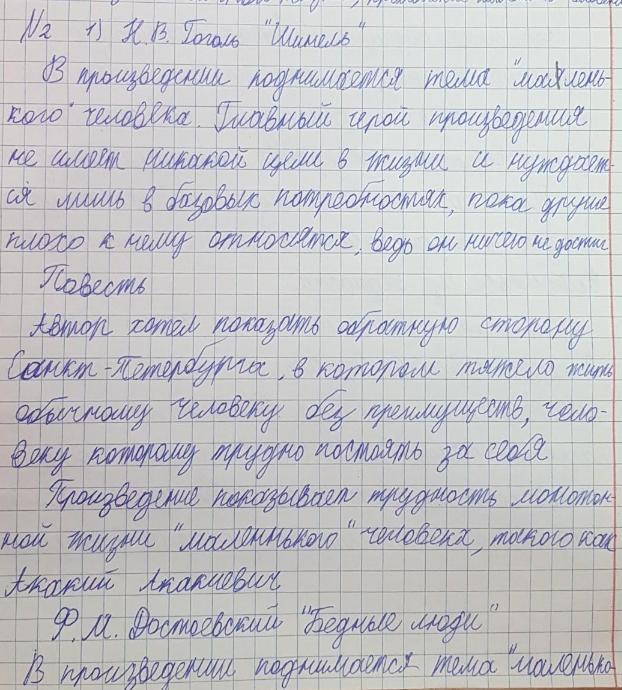 №2 1) Н.В. Гоголь "Шинель"
В произведении поднимается тема "мален-
кого" человека. Главный герой произведения
не имеет никакой цели в жизни и нуждает-
ся лишь в базовых потребностях, пока другие
плохо к нему относятся, ведь он ничего не достиг
Повесть
Автор хотел показать обратную сторону
Санкт-Петербурга, в котором тяжело жить
обычному человеку без преимуществ, чело-
веку которому трудно постоять за себя
Произведение показывает трудность монотон-
ной жизни "маленького" человека, такого как
Акакий Акакиевич
Ф.М. Достоевский "Бедные люди"
В произведении поднимается тема "маленько-